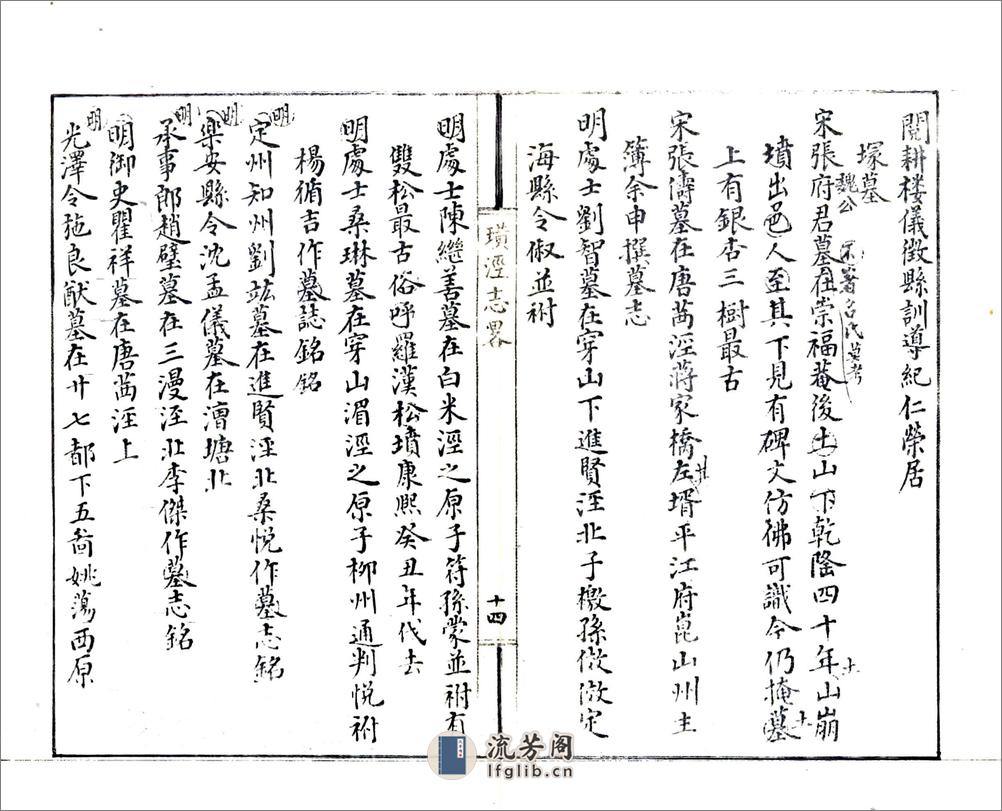 閱耕楼儀徵縣訓導紀仁榮居
塚墓
宋張府君墓在崇福菴後土山下乾隆四十年山崩
魏公
不著名氏莫考
墳出邑人至其下見有碑文仿佛可識今仍掩墓
土
土
上有銀杏三樹最古
宋張濤墓在唐茜涇蔣家橋左壻平江府崑山州主
其
簿余申撰墓志
明處士劉智墓在穿山下進賢涇北子檄孫倣倣定
海縣令俶並祔
璜涇志畧
十四
明處士陳繼善墓在白米涇之原子符孫蒙並祔有
雙松最古俗呼羅漢松墳康熙癸丑年代去
明處士桑琳墓在穿山湄涇之原子柳州通判悦祔
楊循吉作墓誌銘銘
明
定州知州劉竑墓在進賢涇北桑悦作墓志銘
明
樂安縣令沈孟儀墓在漕塘北
明
承事郎趙璧墓在三漫涇北李傑作墓志銘
明御史瞿祥墓在唐茜涇上
明
光澤令施良猷墓在廿七都下五啚姚蕩西原
流芳阁
lfglib.cn